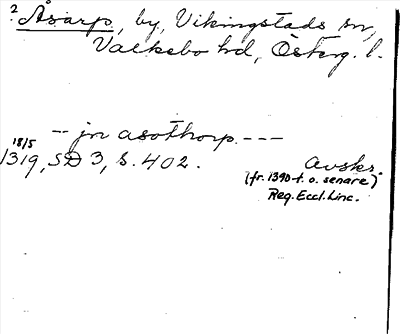 ? Åsarp, by, Vikingstads sn,
Valkebo hd, Österg. l.
-- jn asothorp ---
18/5
1319, SD 3, s. 402. Avskr.
(fr. 1390-t. o. senare)
Reg. Eccl. Linc.